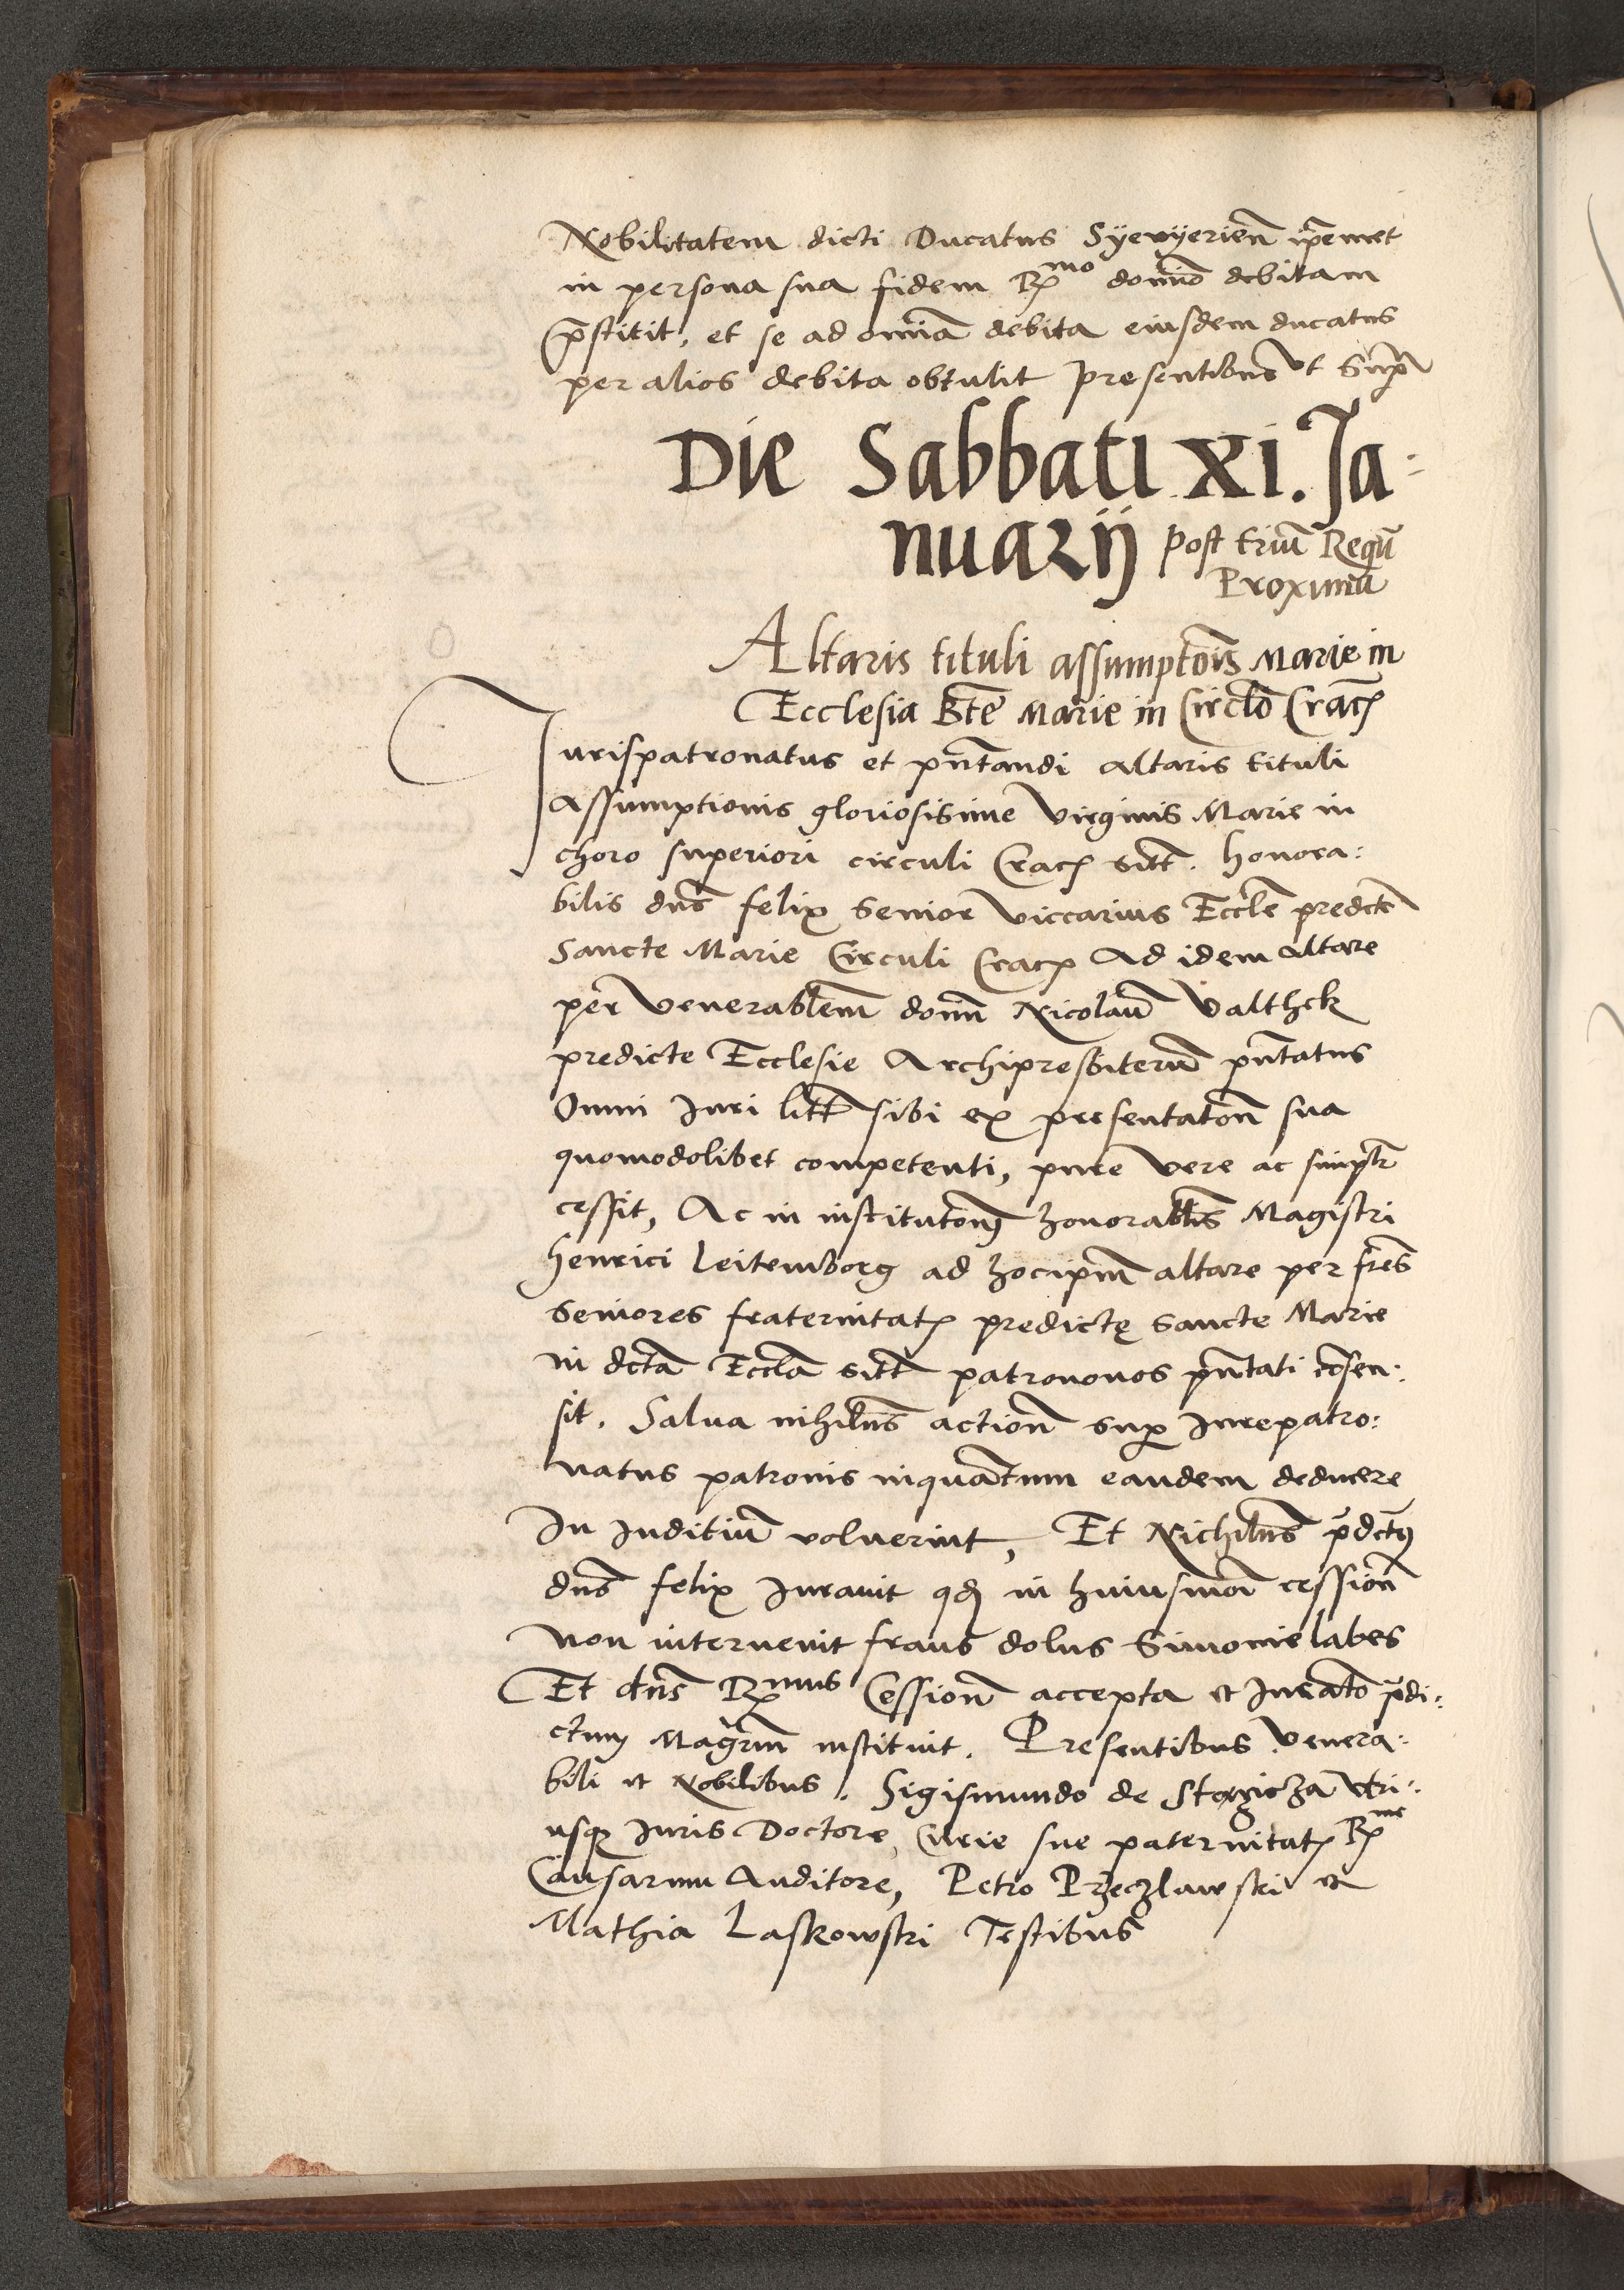 Nobilitatem dicti Ducatus Syevyerieñ ip̃emet
in persona sua fidem R̃mo domĩo debitam
p̃stitit, et se ad om̃ia debita eiusdem ducatus
per alios debita obtulit presentibus ut Sup̃
Die Sabbati XI. Ja-
nuarij post triũ Regũ
Proximũ
Altaris tituli assumptõis Marie in
Ecclesia Bte Marie in Circlo Crac
Jurispatronatus et pñtandi altaris tituli
assumptionis gloriosisime Virginis Marie in
choro superiori circuli Crac sitt. honora:
bilis dñs felix Senior viccarius Eccle predcte
Sancte Marie Circuli Crac Ad idem altare
per venerablem domñ Nicolaũ Valthek
predicte Ecclesie Archipresbiterũ pñtatus
Omni Juri litt sibi ex presentatoñ sua
quomodolibet competenti, pure vere ac simplr
cessit, Ac in institutoñ honorablis Magistri
henrici Leitemborg ad hocipm̃ altare per fres
Seniores fraternitat predictę Sancte Marie
in dcta Eccla sitt patrononos pñtati cõsen:
sit. Salua nihilns actioñ sup Jurepatro:
natus patronis inquantum eandem deducere
In Juditiũ voluerint, Et Nichilns p̃dct9
dñs felix Jurauit qd in huiusmoi cessioñ
non interuenit fraus dolus Simonie labes
Et dñs Rmus Cessioñ accepta et Jurato p̃di:
ctum Magrm̃ instituit. Presentibus Venera:
bili et Nobilibus. Sigismundo de Stezicza Utri:
usq Juris Doctore, Curie sue paternitat Rme
Causarum Auditore, Petro Przeczlawski et
Mathia Laskowski Testibus